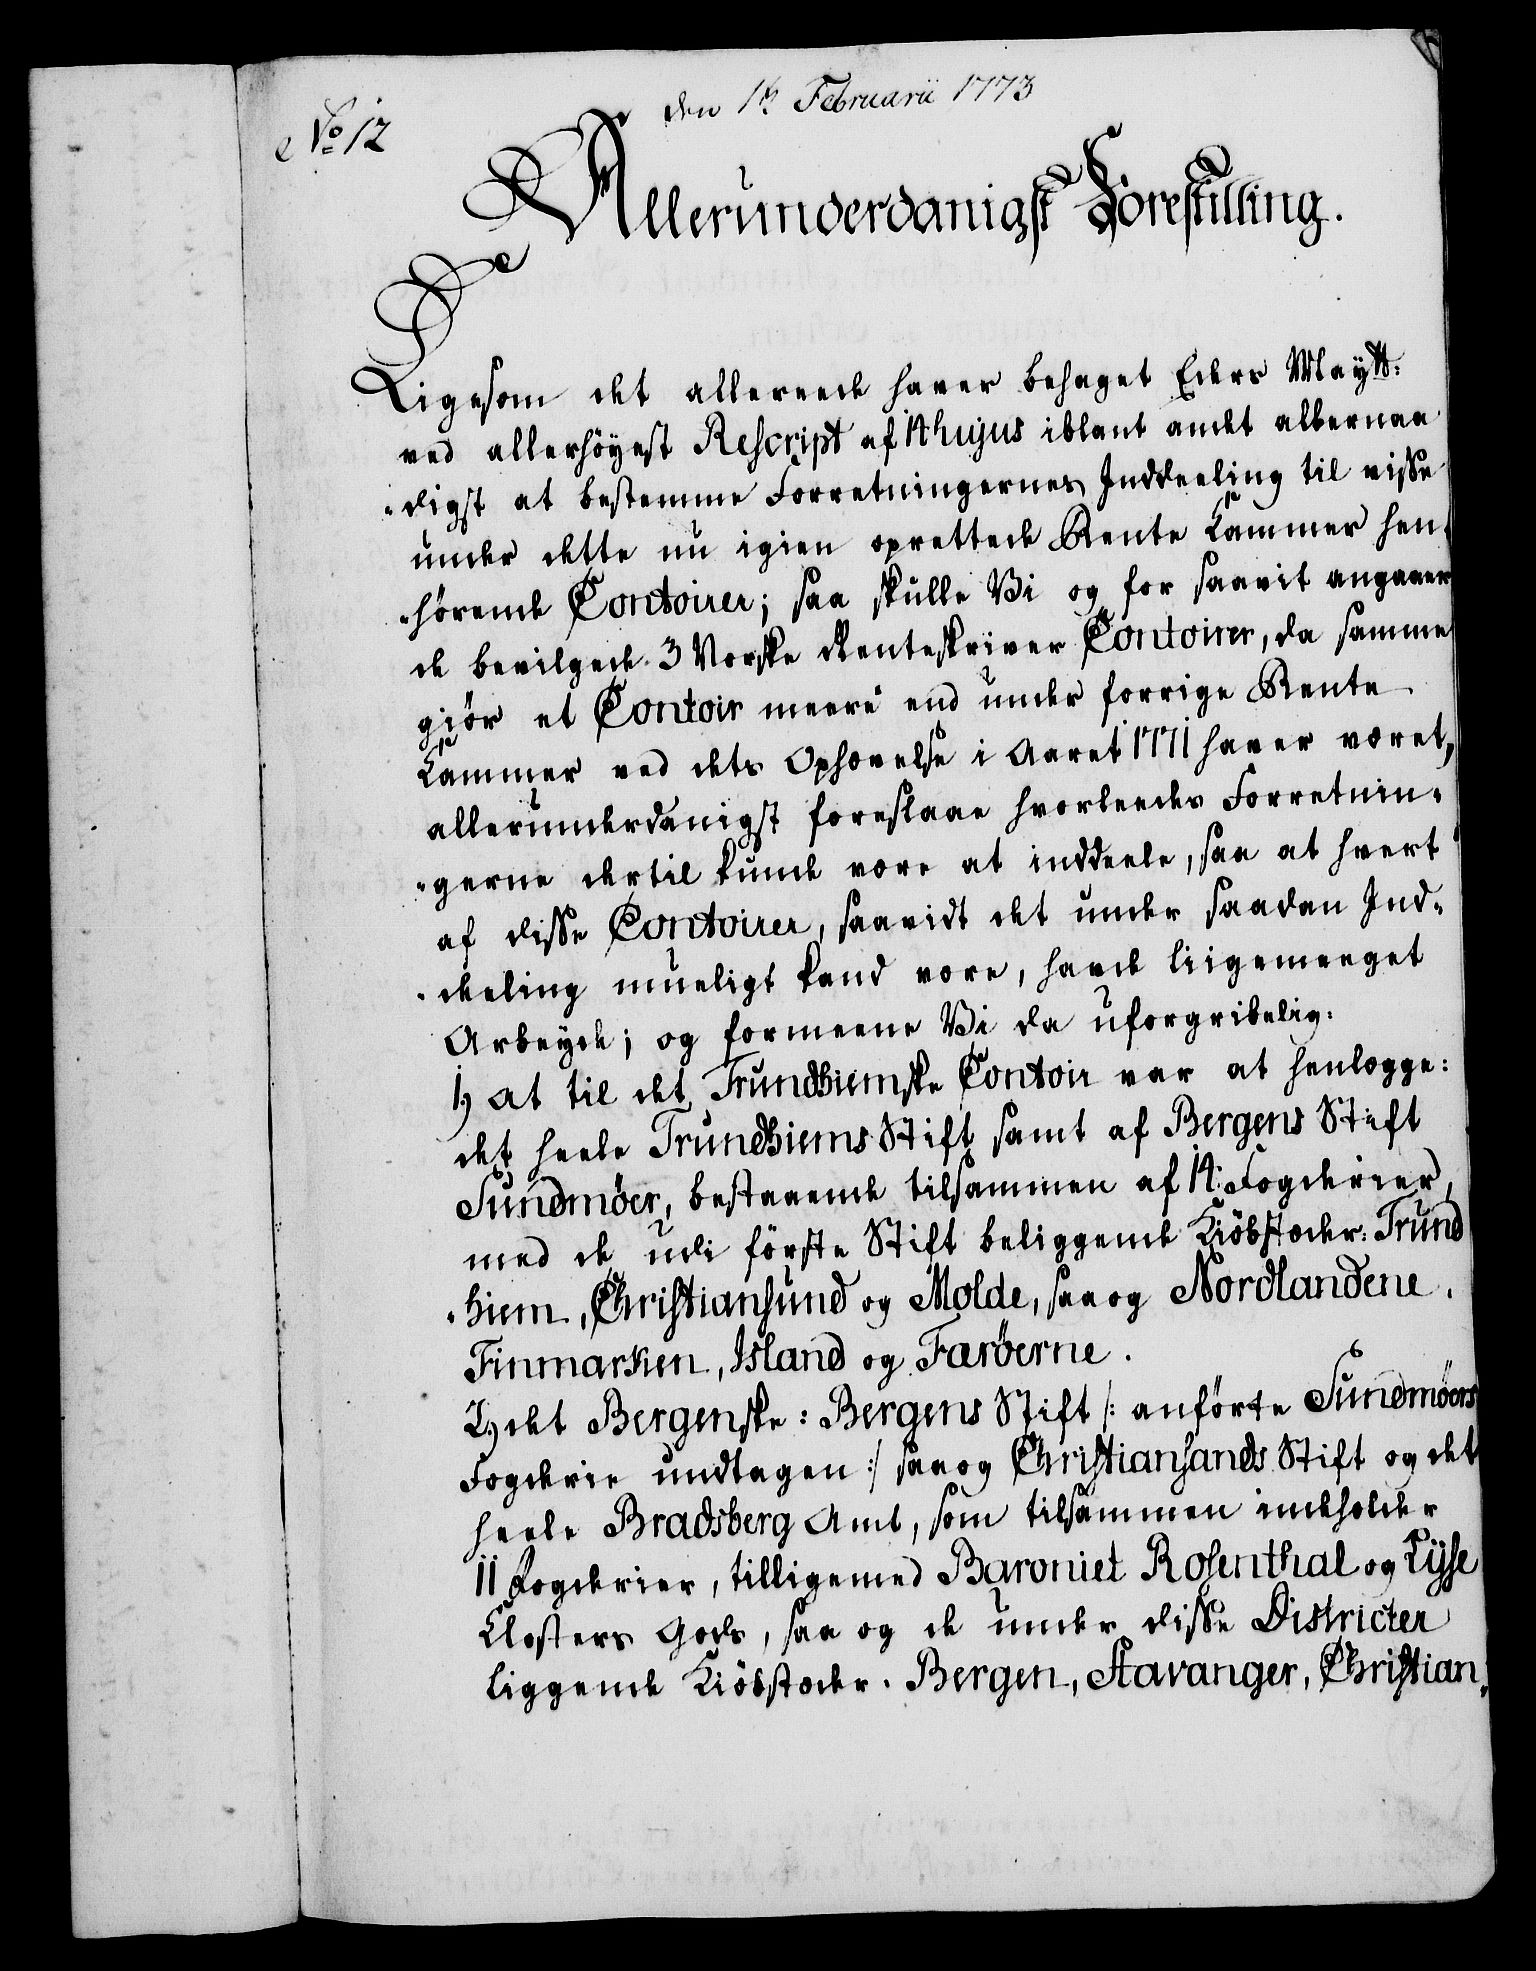 den 16 Februarii 1773
No 12
Allerunderdanigst Forestilling.
Ligesom det allereede haver behaget Eders Maytt:
ved allerhöyest Rescript af 14 hujus iblant andet allernaa
-digst at bestemme Forretningernes Inddeeling til visse
under dette nu igien oprettede Rente Kammer hen-
-hörende Contoirer; saa skulle Vi og for saavit angaaer
de bevilgede 3 Norske Renteskriver Contoirer, da samme
giör et Contoir meere end under forrige Rente
Kammer ved dets Ophævelse i Aaret 1771 haver været,
allerunderdanigst foreslaae hvorleedes Forretnin-
-gerne dertil kunde være at inddeele, saa at hvert
af disse Contoirer, saavidt det under saadan Ind-
-deeling mueligt kand være, havde liigemeeget
Arbeyde; og formeene Vi da uforgribelig:
1) At til det Trundhiemske Contoir var at henlægge:
det heele Trundhiems Stift samt af Bergens Stift
Sundmöer, bestaaende tilsammen af 14 Fogderier,
med de udi förste Stift beliggende Kiöbstæder: Trund
-hiem, Christiansund og Molde, saa og Nordlandene.
Finmarken, Island og Færöerne.
2) det Bergenske: Bergens Stift /: anförte Sundmöers
Fogderie undtagen :/ saa og Christiansands Stift og det
heele Bradsberg Amt, som tilsammen indeholder
11 Fogderier, tilligemed Baroniet Rosenthal og Lyse
Closters Gods, saa og de under disse Districter
liggende Kiöbstæder. Bergen, Stavanger, Christian-